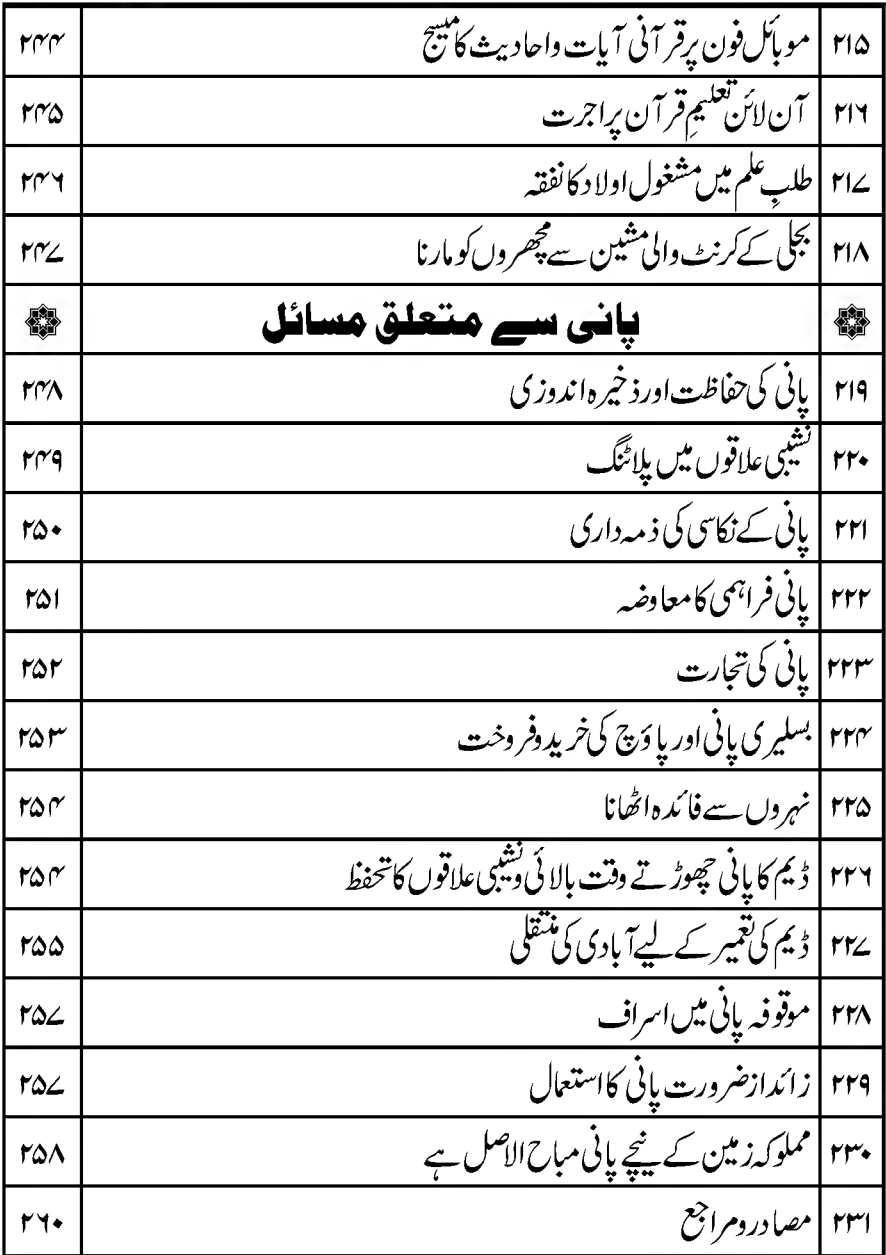 ۲۱۵ موبائل فون پر قرآنی آیات واحادیث کا میسج ۲۴۴
۲۱۶ آن لائن تعلیمِ قرآن پر اجرت ۲۴۵
۲۱۷ طلبِ علم میں مشغول اولاد کا نفقہ ۲۴۶
۲۱۸ بجلی کے کرنٹ والی مشین سے مچھروں کو مارنا ۲۴۷
پانی سے متعلق مسائل
۲۱۹ پانی کی حفاظت اور ذخیرہ اندوزی ۲۴۸
۲۲۰ نشیبی علاقوں میں پلاٹنگ ۲۴۹
۲۲۱ پانی کے نکاسی کی ذمہ داری ۲۵۰
۲۲۲ پانی فراہمی کا معاوضہ ۲۵۱
۲۲۳ پانی کی تجارت ۲۵۲
۲۲۴ بسلیری پانی اور پاؤچ کی خرید وفروخت ۲۵۳
۲۲۵ نہروں سے فائدہ اٹھانا ۲۵۴
۲۲۶ ڈیم کا پانی چھوڑتے وقت بالائی ونشیبی علاقوں کا تحفظ ۲۵۴
۲۲۷ ڈیم کی تعمیر کے لیے آبادی کی منتقلی ۲۵۵
۲۲۸ موقوفہ پانی میں اسراف ۲۵۷
۲۲۹ زائد از ضرورت پانی کا استعمال ۲۵۷
۲۳۰ مملوکہ زمین کے نیچے پانی مباح الاصل ہے ۲۵۸
۲۳۱ مصادر ومراجع ۲۶۰